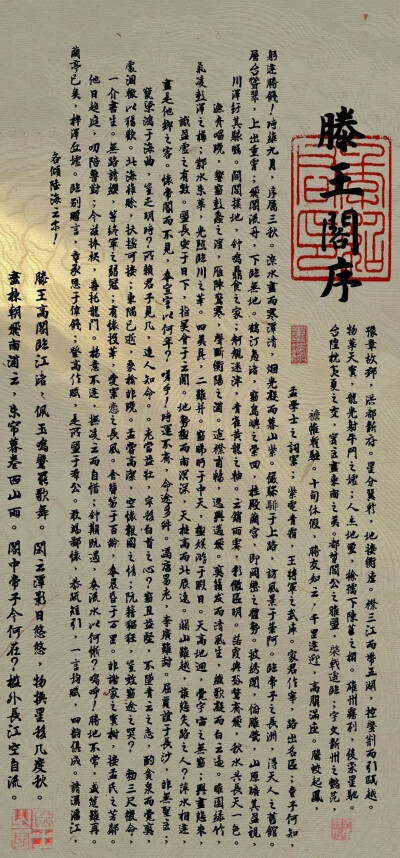 滕王閣序
豫章故郡，洪都新府。星分翼軫，地接衡廬。襟三江而帶五湖，控蠻荆而引甌越。
物華天寶，龍光射牛鬥之墟；人杰地靈，徐孺下陳蕃之榻。雄州霧列，俊采星馳。
台隍枕夷夏之交，賓主盡東南之美。都督閻公之雅望，棨戟遥臨；宇文新州之懿範，
襜帷暫駐。十旬休假，勝友如云，千里逢迎，高朋滿座。騰蛟起鳳，
孟學士之詞宗；紫電青霜，王將軍之武庫。家君作宰，路出名區；童子何知，
躬逢勝餞！時維九月，序屬三秋。潦水盡而寒潭清，烟光凝而暮山紫。儼驂騑于上路，訪風景于崇阿。臨帝子之長洲，得天人之舊館。
層台聳翠，上出重霄；飛閣流丹，下臨無地。鶴汀鳧渚，窮島嶼之縈回；桂殿蘭宮，即岡巒之體勢。披綉闥，俯雕甍，山原曠其盈視，
川澤紆其駭矚。閭閻撲地，鐘鳴鼎食之家；舸艦迷津，青雀黄龍之舳。云銷雨霽，彩徹區明。落霞與孤鶩齊飛，秋水共長天一色。
漁舟唱晚，響窮彭蠡之濱，雁陣驚寒，聲斷衡陽之浦。遥襟甫暢，逸興遄飛。爽籟發而清風生，纖歌凝而白云遏。睢園綠竹，
氣凌彭澤之樽；鄴水朱華，光照臨川之筆。四美具，二難并。窮睇眄于中天，極娛游于暇日。天高地迥，覺宇宙之無窮；興盡悲來，
識盈虛之有數。望長安于日下，指吳會于云間。地勢極而南溟深，天柱高而北辰遠。關山難越，誰悲失路之人？萍水相逢，
盡是他鄉之客。懷帝閽而不見，奉宣室以何年？嗟乎！時運不齊，命途多舛。馮唐易老，李廣難封。屈賈誼于長沙，非無聖主；
竄梁鴻于海曲，豈乏明時？所賴君子見幾，達人知命。老當益壯，寧移白首之心？窮且益堅，不墜青云之志。酌貪泉而覺爽，
處涸轍以猶歡。北海雖賒，扶搖可接；東隅已逝，桑榆非晚。孟嘗高潔，空懷報國之情；阮籍猖狂，豈效窮途之哭？勃三尺微命，
一介書生。無路請纓，等終軍之弱冠；有懷投筆，愛宗慤之長風。舍簪笏于百齡，奉晨昏于萬里。非謝家之寶樹，接孟氏之芳鄰。
他日趨庭，叨陪鯉對；今兹捧袂，喜托龍門。楊意不逢，撫凌云而自惜；鐘期既遇，奏流水以何慚？嗚呼！勝地不常，盛筵難再。
蘭亭已矣，梓澤丘墟。臨別贈言，幸承恩于偉餞；登高作賦，是所望于群公。敢竭鄙懷，恭疏短引。一言均賦，四韵俱成。請灑潘江，
各傾陸海云尔！
滕王高閣臨江渚，佩玉鳴鸞罷歌舞。閑云潭影日悠悠，物換星移幾度秋。
畫棟朝飛南浦云，朱帘暮卷西山雨。閣中帝子今何在？檻外長江空自流。